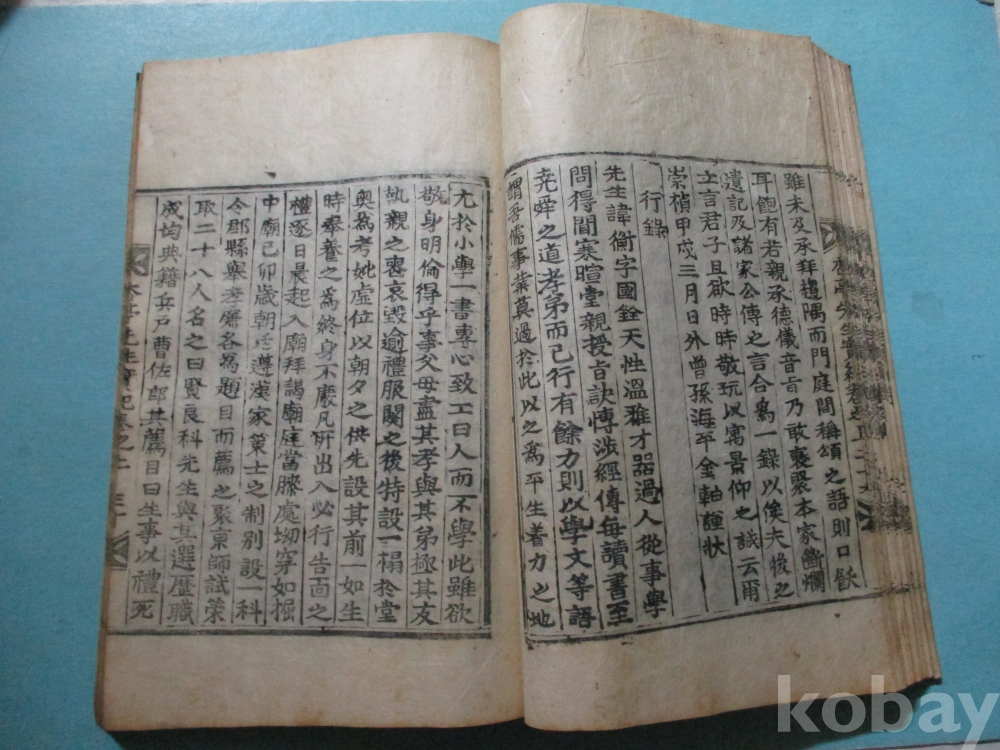 雖未及承拜趨隅而門庭間稱頌之語則口飫
耳飽有若親承德儀音旨乃敢裒聚本家斷爛
遺記及諸家公傳之言合爲一錄以俟夫後之
立言君子且欲時時敬玩以寓景仰之誠云爾
崇禎甲戌三月日外曾孫海平金軸謹狀
行錄
先生諱衡字國銓天性溫雅才器過人從事學
問得聞寒暄堂親授旨訣博涉經傳每讀書至
堯舜之道孝弟而已行有餘力則以學文等語
謂吾儒事業莫過於此以之爲平生着力之地
尤於小學一書專心致工曰人而不學此雖欲
敬身明倫得乎事父母盡其孝與其弟極其友
執親之喪哀毀逾禮服闋之後特設一榻於堂
奧爲考妣虛位以朝夕之供先設其前一如生
時奉養之爲終身不廢凡所出入必行告面之
禮逐日晨起入廟拜謁廟庭當膝處坳穿如掘
中廟己卯歲朝廷遵漢家策士之制別設一科
令郡縣擧孝廉各爲題目而薦之聚京師試策
取二十八人名之曰賢良科先生與其選歷職
成均典籍兵戶曹佐郎其薦目曰生事以禮死
先生實紀卷之二
kobay